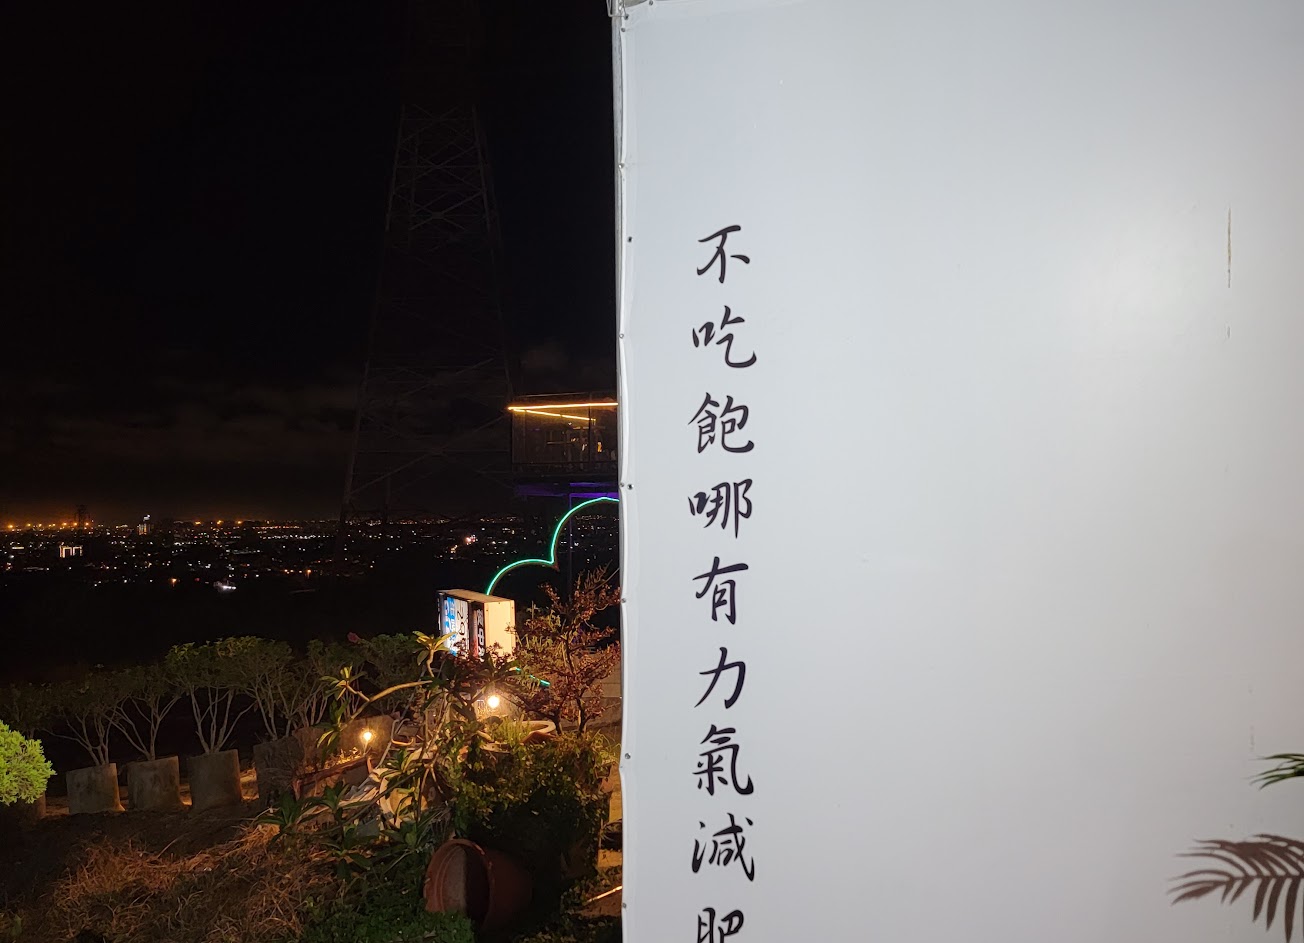 不吃飽哪有力氣減肥